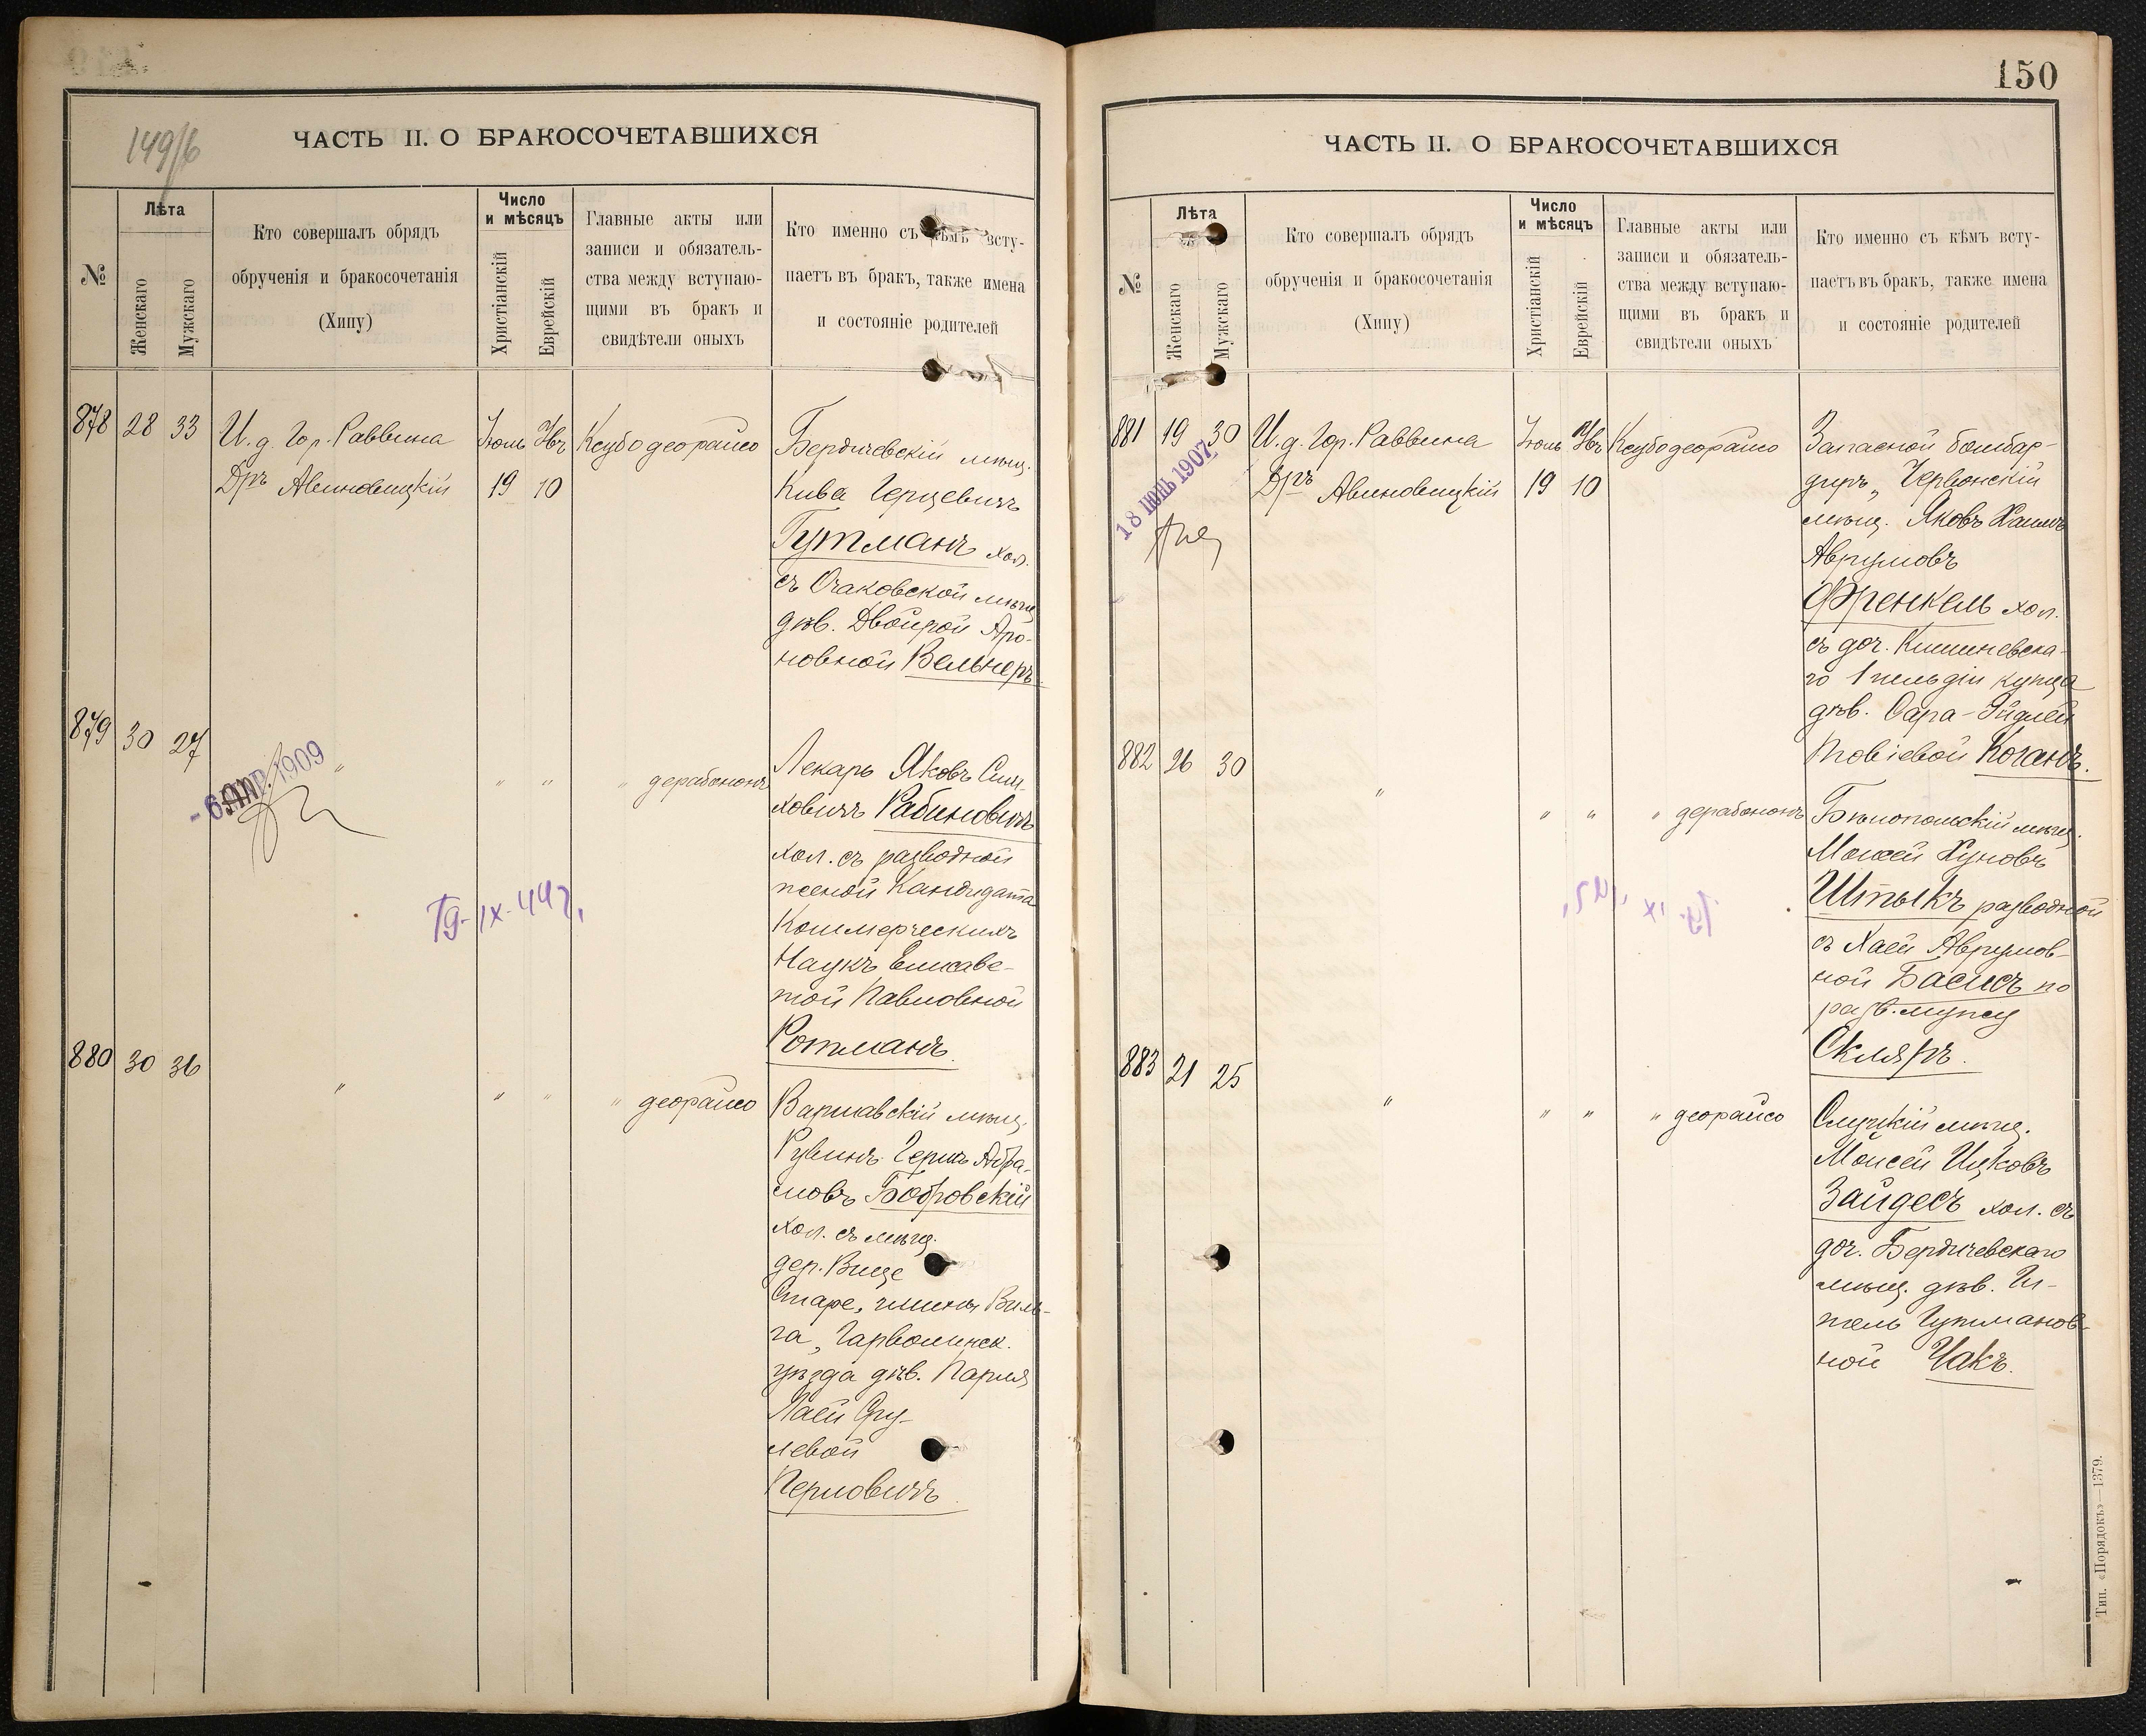 149/б
ЧАСТЬ II. О БРАКОСОЧЕТАВШИХСЯ
№
Лѣта
Женскаго
Мужскаго
Кто совершалъ обрядъ
обрученія и бракосочетанія
(Хипу)
Число
и мѣсяцъ
Христіанскій
Еврейскій
Главные акты или
записи и обязатель-
ства между вступаю-
щими въ бракъ и
свидѣтели оныхъ
Кто именно съ кѣмъ всту-
паетъ въ бракъ, также имена
и состояніе родителей
878 28 33 И. д. Гор. Раввина
Дръ Авиновицкій
Іюль
19 10
Ксубо деорайсо
Бердичевскій мѣщ.
Кива Герцевичъ
Гутманъ хол.
съ Очаковской мѣщ.
дѣв. Двойрой Аро-
новной Вельнеръ
879 30 27 " " " " дерабононъ
- 6 АПР. 1909
Лекарь Яковъ Сим-
ховичъ Рабиновичъ
хол. съ разводной
женой Кандидата
Коммерческихъ
Наукъ Елисаве-
той Павловной
Ротманъ.
880 30 36 " " " " деорайсо
Варшавскій мѣщ.
Рувинъ Гершъ Абра-
мовъ Бобровскій
хол. съ мѣщ.
дер. Вице
Старе, гмины Виль-
га, Гарволинск.
уѣзда дѣв.
Хаей Сру-
левой
Перловичъ.
150
ЧАСТЬ II. О БРАКОСОЧЕТАВШИХСЯ
№
Лѣта
Женскаго
Мужскаго
Кто совершалъ обрядъ
обрученія и бракосочетанія
(Хипу)
Число
и мѣсяцъ
Христіанскій
Еврейскій
Главные акты или
записи и обязатель-
ства между вступаю-
щими въ бракъ и
свидѣтели оныхъ
Кто именно съ кѣмъ всту-
паетъ въ бракъ, также имена
и состояніе родителей
881 19 30 И. д. Гор. Раввина
Дръ Авиновицкій
Іюль
19 10
Ксубо деорайсо
18 1907
Запасной бомбар-
диръ, Червонскій
мѣщ. Яковъ Хаимъ
Аврумовъ
Френкель хол.
съ доч. Кишиневска-
го 1 гильдіи купца
дѣв. Сара-Эйдлей
Товіевой Коганъ.
882 26 30 " " " " дерабононъ
Бѣлопольскій мѣщ.
Моисей Хуновъ
Штыкъ разводной
съ Хаей Аврумов-
ной Басисъ по
разв. мужу
Скляръ.
883 21 25 " " " " деорайсо
Слуцкій мѣщ.
Моисей Ицковъ
Зайдесъ хол. съ
доч. Бердичевскаго
мѣщ. дѣв. Ги-
тель Гутманов-
ной Чакъ.
Тип. «Порядокъ»—1379.